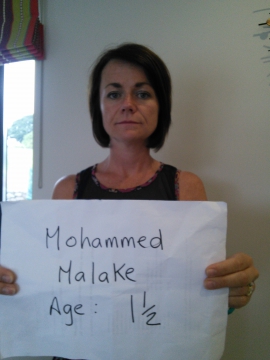 Mohammed
Malake
Age: 1½